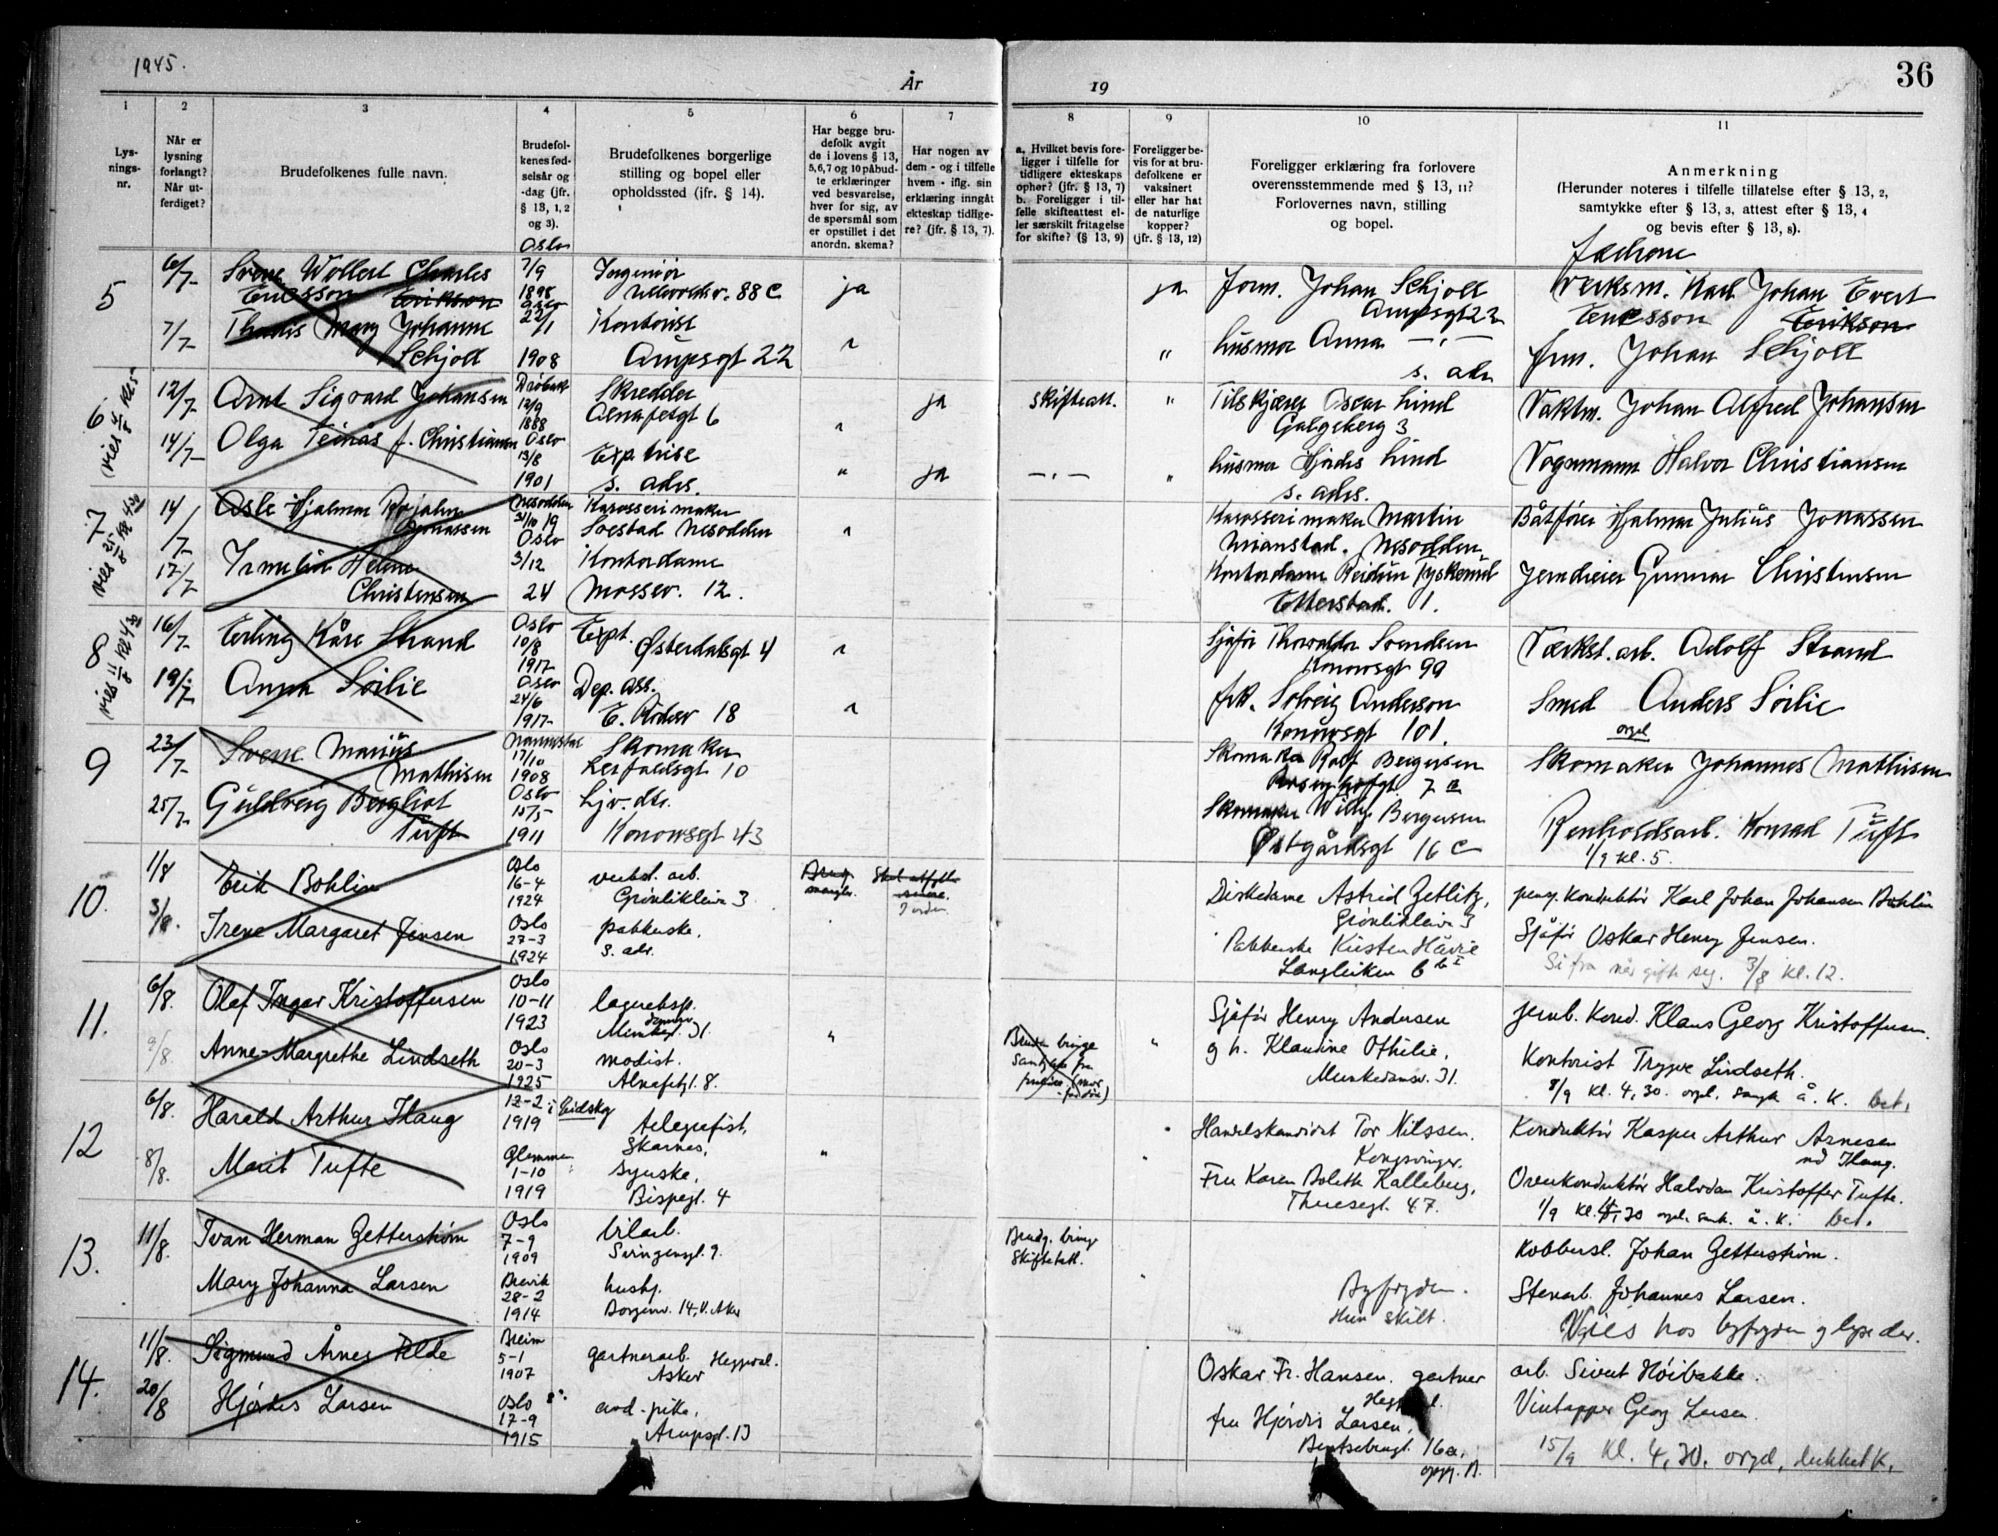 1945.
År
19
36
1
2
3
4
5
6
7
8
9
10
11
Lys-
nings-
nr.
Når er
lysning
forlangt?
Når ut-
ferdiget?
Brudefolkenes fulle navn.
Brudefol-
kenes fød-
selsår og
-dag (jfr.
§ 13, 1, 2
og 3).
Brudefolkenes borgerlige
stilling og bopel eller
opholdssted (jfr. § 14).
Har begge bru-
defolk avgit
de i lovens § 13,
5,6,7 og 10 påbud-
te erklæringer
ved besvarelse,
hver for sig, av
de spørsmål som
er opstillet i det
anordn. skema?
Har nogen av
dem - og i tilfelle
hvem - iflg. sin
erklæring inngått
ekteskap tidlige-
re? (jfr. § 13, 7).
a. Hvilket bevis fore-
ligger i tilfelle for
tidligere ekteskaps
ophør? (jfr. § 13, 7)
b. Foreligger i til-
felle skifteattest el-
ler særskilt fritagelse
for skifte? (§ 13, 9)
Foreligger be-
vis for at bru-
defolkene er
vaksinert
eller har hat
de naturlige
kopper?
(jfr. § 13, 12)
Foreligger erklæring fra forlovere
overensstemmende med § 13, 11?
Forlovernes navn, stilling
og bopel.
Anmerkning
(Herunder noteres i tilfelle tillatelse efter § 13, 2,
samtykke efter § 13, 3, attest efter § 13, 4
og bevis efter § 13, 8).
Fædrene
5
6/7-
Wollert Charles
Ericsson Erikson
Oslo
7/9
1898
Ingeniør
Ullevoldsv. 88 C
ja
ja
form. Johan Schjoll
Arupsgt 22
Verksm. Karl Johan Evert
Ericsson Erikson
7/7-
Mary Johanne
Schjoll
Oslo
22/1
1908
Kontorist
Arupsgt 22
"
"
husmor Anna -"-
s. adr
frm. Johan Schjoll
6
vies 4/8 kl 5
12/7-
Arnt Sigvard Johansen
Drøbak
12/9
1888
Skredder
Alnafetgt 6
"
ja
skifteatt.
"
Tilskjærer Oscar Lind
Galgeberg 3
Vaktm. Johan Alfred Johansen
14/7-
Olga Teinås f. Christiansen
Oslo
13/8
1901
Exp trise
s. adrs.
"
ja
-"-
"
husmor Hjørdis Lind
s. adrs.
Vognmann Halvor Christiansen
7
vies 25/8 kl 4 30
14/7-
Asle Hjalmar
Jonassen
Nesodden
31/10 19
Karosserimaker
Nesodden
"
Karosserimaker Martin
Nesodden
Båtfører Hjalmar Julius Jonassen
17/7
Helene
Christensen
Oslo
3/12
24
Kontordame
Mossev. 12.
Kontordame Reidun
Etterstad. 1.
Jerndreier Gunnar Christensen
8
vies 11/8 kl 4 30
16/7-
Erling Kåre Strand
Oslo
10/8
1917-
Expt.
Østerdalsgt 4
"
Sjåfør Thorvaldor Svendsen
Konowsgt 99
Værkst. arb. Adolf Strand
19/7-
Anna Sörlie
Oslo
24/6
1917-
Dep. ass.
E. Rödesv 18
"
frk. Solveig Anderson
Konowsgt 101.
Smed Anders Sörlie
orgel
9
23/7-
Sverre Marius
Mathisen
Nannestad
17/10
1908
Skomaker
Leirfaldsgt 10
Skomaker Rolf Bergersen
7 a
Skomaker Johannes Mathisen
25/7-
Guldveig Bergliot
Tuft
Oslo
15/5-
1911
hjv. dtr.
Konowsgt 43
Skomaker Willy Bergersen
Østgårdsgt 16 C
Renholdsarb. Konrad Tuft
1/9 kl. 5.
10.
1/8
Erik Bohlin
Oslo
16-4
1924
verkst. arb.
Grønlikleiva 3
Brudg.
mangler.
Skal utfylle
senere.
I orden
Dirkedame Astrid Zetlitz,
Grønlikleiva 3
pens. konduktör Karl Johan Johansen Bohlin
3/8.
Irene Margaret Jensen
Oslo
27-3
1924
pakkerske.
s. adr.
Pakkerske Kirsten Håvie
Langleiken 6 b I
Sjåfør Oskar Henry Jensen.
Si fra når gifte seg. 3/8 kl. 12.
11.
6/8.
Olaf Ingar Kristoffersen
Oslo
10-11
1923
lagereksp.
Munkedamsv. 31.
"
"
Sjåfør Henry Andersen
Jernb. kond. Klaus Georg Kristoffersen.
9/8.
Anne-Margrethe Lindseth
Oslo
20-3
1925
modist.
Alnafetgt. 8.
Bruden bringe
samtykke fra
g h. Klaudine Othilie,
Munkedamsv. 31.
Kontorist Trygve Lindseth.
8/9 kl. 4,30. orgel, sang å. K. bet.
12
6/8.
Harald Arthur Haug
12-2 i Eidskog
1919
Telegrafist,
Skarnes,
"
"
Handelskandidat Tor Nilssen.
Kongsvinger.
Konduktör Kasper Arthur Arnesen
Haug.
8/8.
Marit Tufte
Glemmen
1-10
1919
syerske,
Bispegt. 4
Fru Karen Boletth Kalleberg,
Theresegt. 47.
Overkonduktör Halvdan Kristoffer Tufte.
1/9 kl. 4,30 orgel. å. K. bet.
13.
11/8.
Ivan Herman Zetterström
Oslo
7-9
1909
bilarb.
Svingensgt. 9.
Brudg. bringe
Skifteatt.
"
Kobbersl. Johan Zetterström.
Mary Johanna Larsen
Brevik
28-2
1914
hushj.
Borgenv. 14, V. Aker
Byfogden.
Hun skilt.
Stenarb. Johannes Larsen.
Vies hos byfogden
14.
11/8.
Sigmund Årnes Felde
Breim
5-1
1907
gartnerarb. Heggedal.
Asker
Oskar Fr. Hansen. gartner
arb. Sivert Höibakke.
20/8
Hjördis Larsen
Oslo
17-9
1915
Arupsgt. 13
fru Hjördis Larsen,
Bentsebrugt. 16a,
oppg. A.
Vintapper Georg Larsen.
15/9 kl. 4,30. orgel, lukket K.